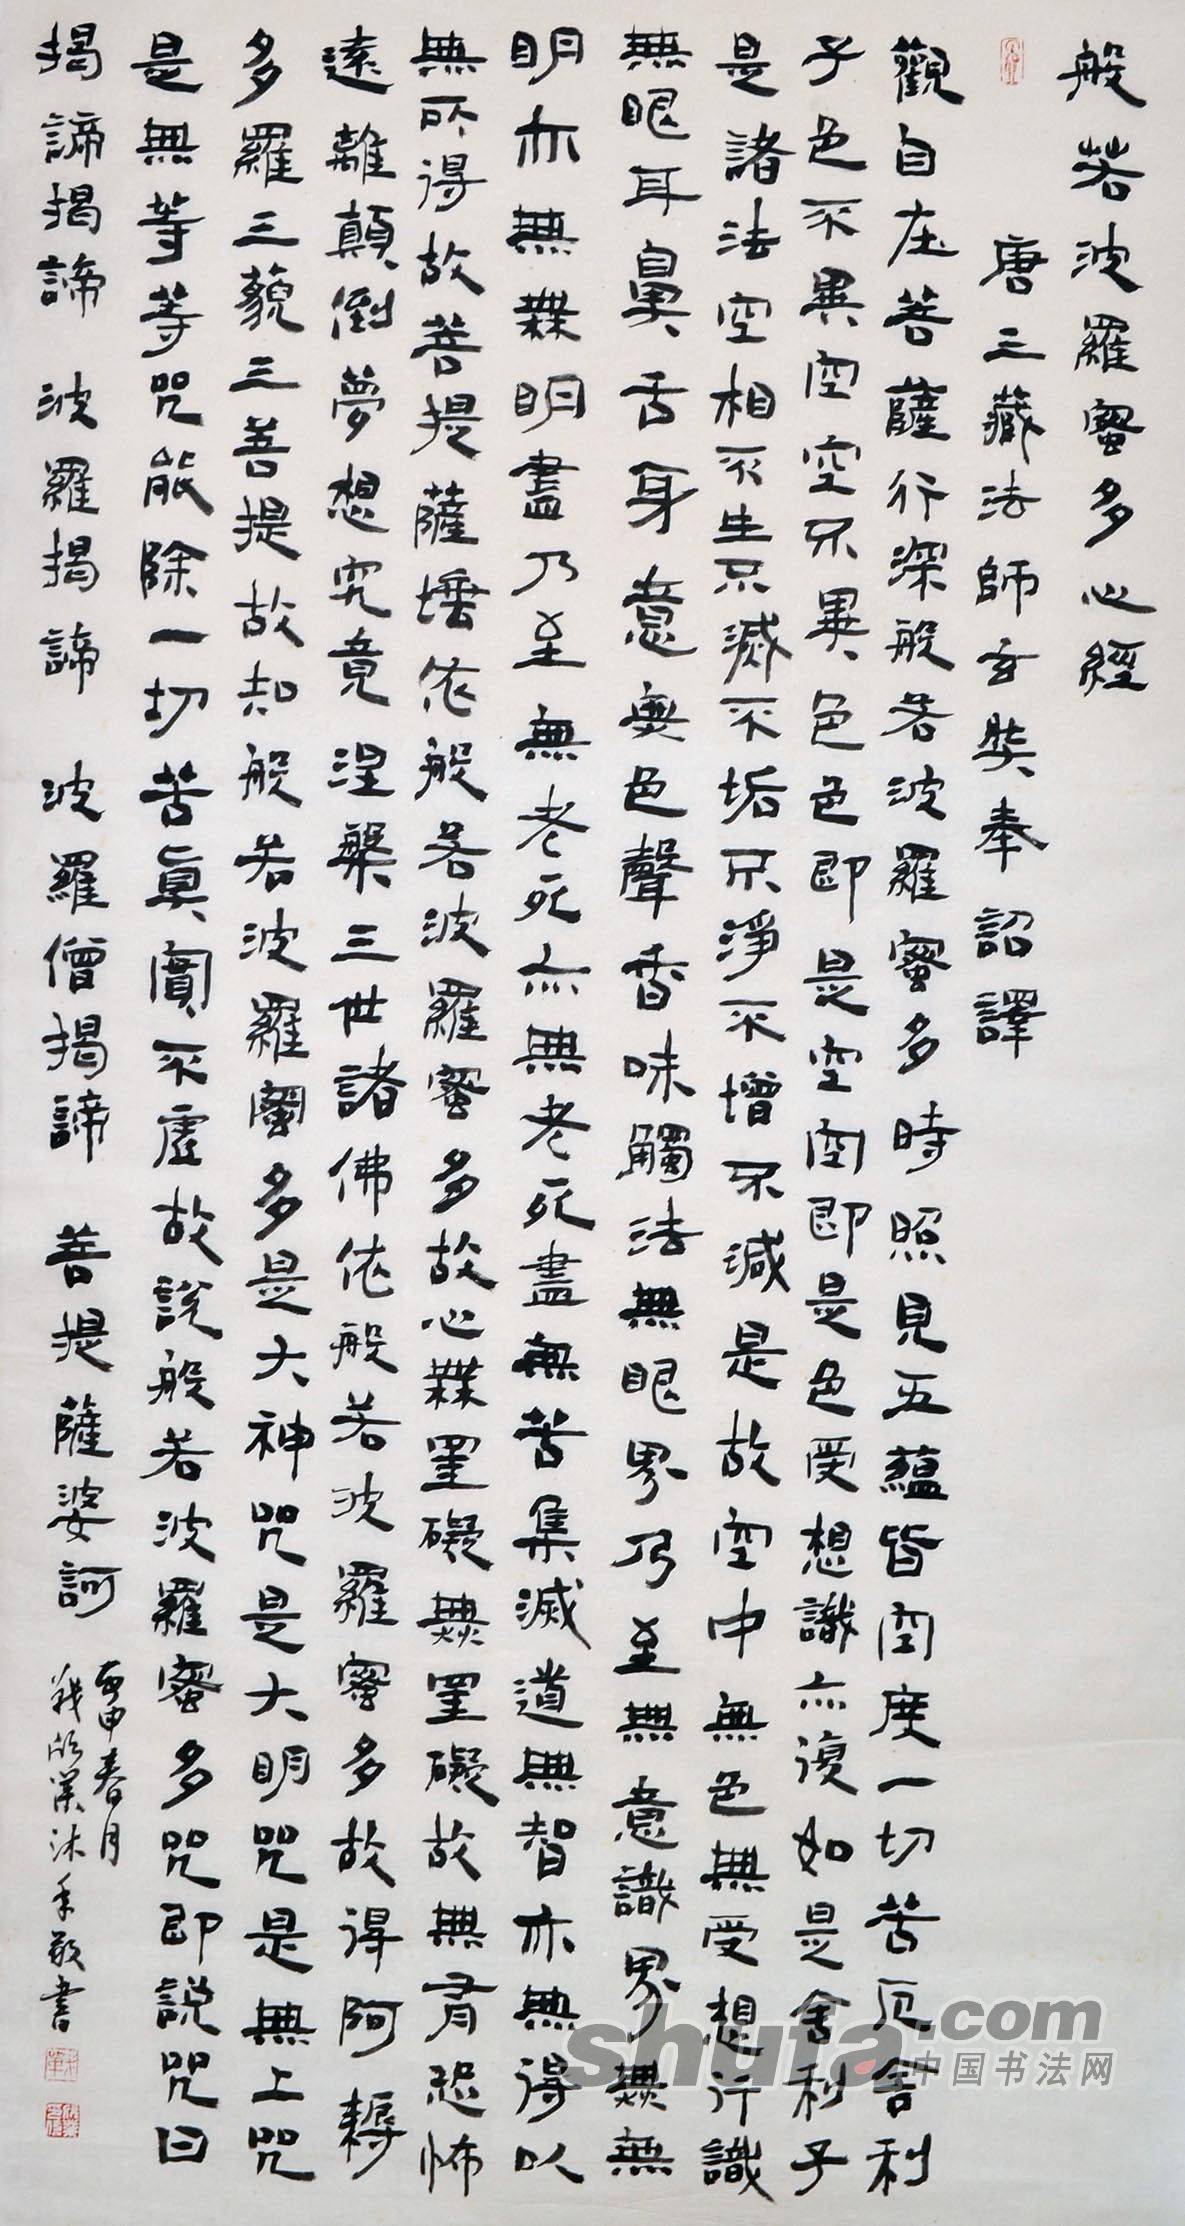 般若波羅蜜多心經
唐三藏法師玄奘奉詔譯
觀自在菩薩行深般若波羅蜜多時照見五蘊皆空度一切苦厄舍利
子色不異空空不異色色即是空空即是色受想識亦復如是舍利子
是諸法空相不生不滅不垢不淨不增不減是故空中無色無受想行識
無眼耳鼻舌身意無色聲香味觸法無眼界乃至無意識界無無
明亦無無明盡乃至無老死亦無老死盡無苦集滅道無智亦無得以
無所得故菩提薩埵依般若波羅蜜多故心無罣礙無罣礙故無有恐怖
遠離顛倒夢想究竟涅槃三世諸佛依般若波羅蜜多故得阿耨
多羅三藐三菩提故知般若波羅蜜多是大神咒是大明咒是無上咒
是無等等咒能除一切苦真實不虛故說般若波羅蜜多咒即說咒曰
揭諦揭諦 波羅揭諦 波羅僧揭諦 菩提薩婆訶
丙申春月
沐手敬書
shufa.com
中国书法网